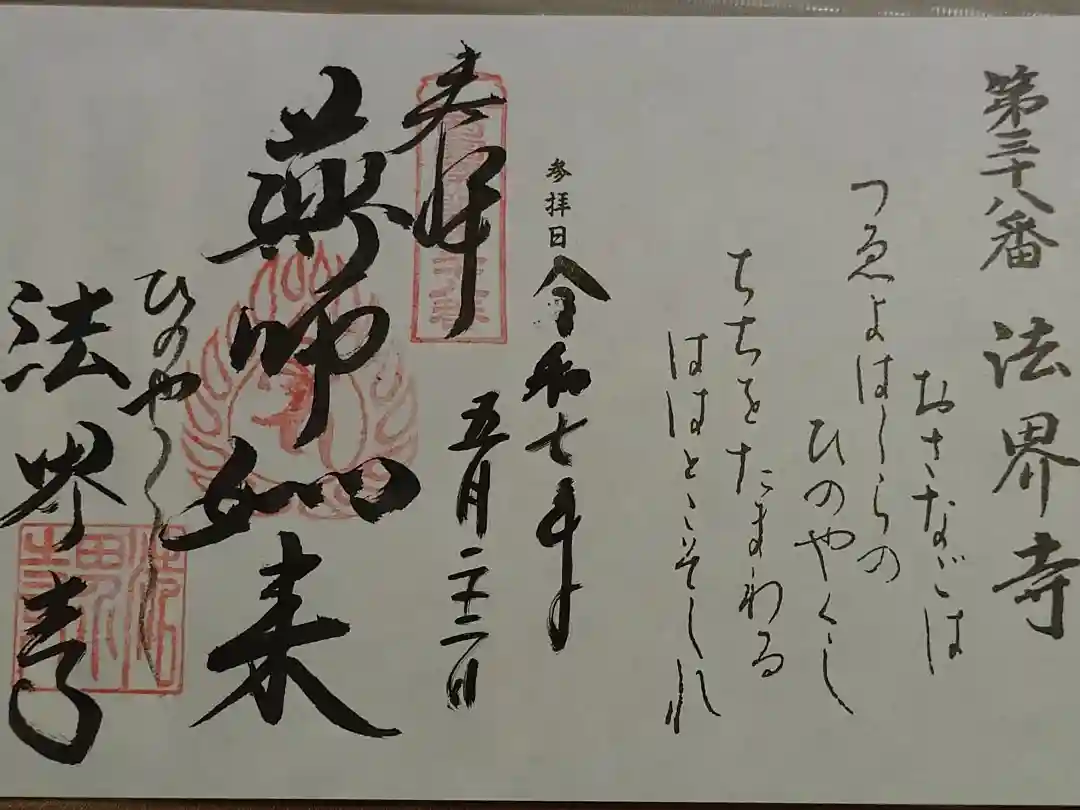 第三十八番 法界寺
おさなごは
つゑよはしらの
ひのやくし
ちちをたまわる
ははとこそしれ
参拝日 令和七年
五月二十二日
奉拝
薬師如来
ひのやくし
法界寺
法界寺